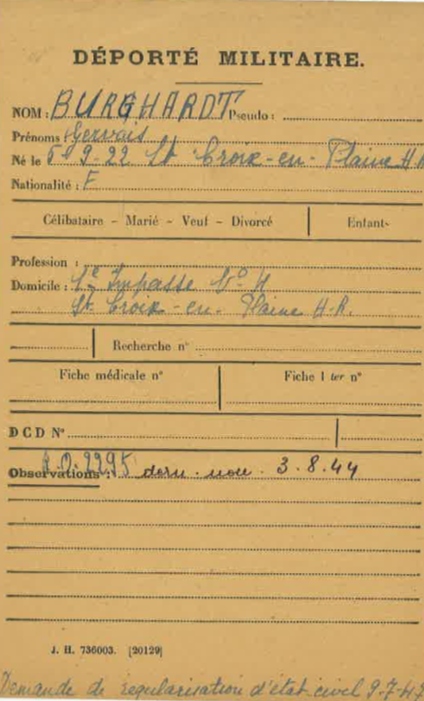 DÉPORTÉ MILITAIRE.
NOM : BURGHARDT Pseudo :
Prénoms Gervais
Né le 5 9-22 St Croix-en-Plaine H.R
Nationalité : F
Célibataire - Marié - Veuf - Divorcé Enfants
Profession :
Domicile : Impasse N° H
St Croix-en-Plaine H-R.
Recherche n°
Fiche médicale n° Fiche 1 ter n°
DCD N°
Observations : R.O. 2295 dern. nouv. 3.8.44
J. H. 736003. [20129]
Demande de régularisation d'état civil 9-7-47